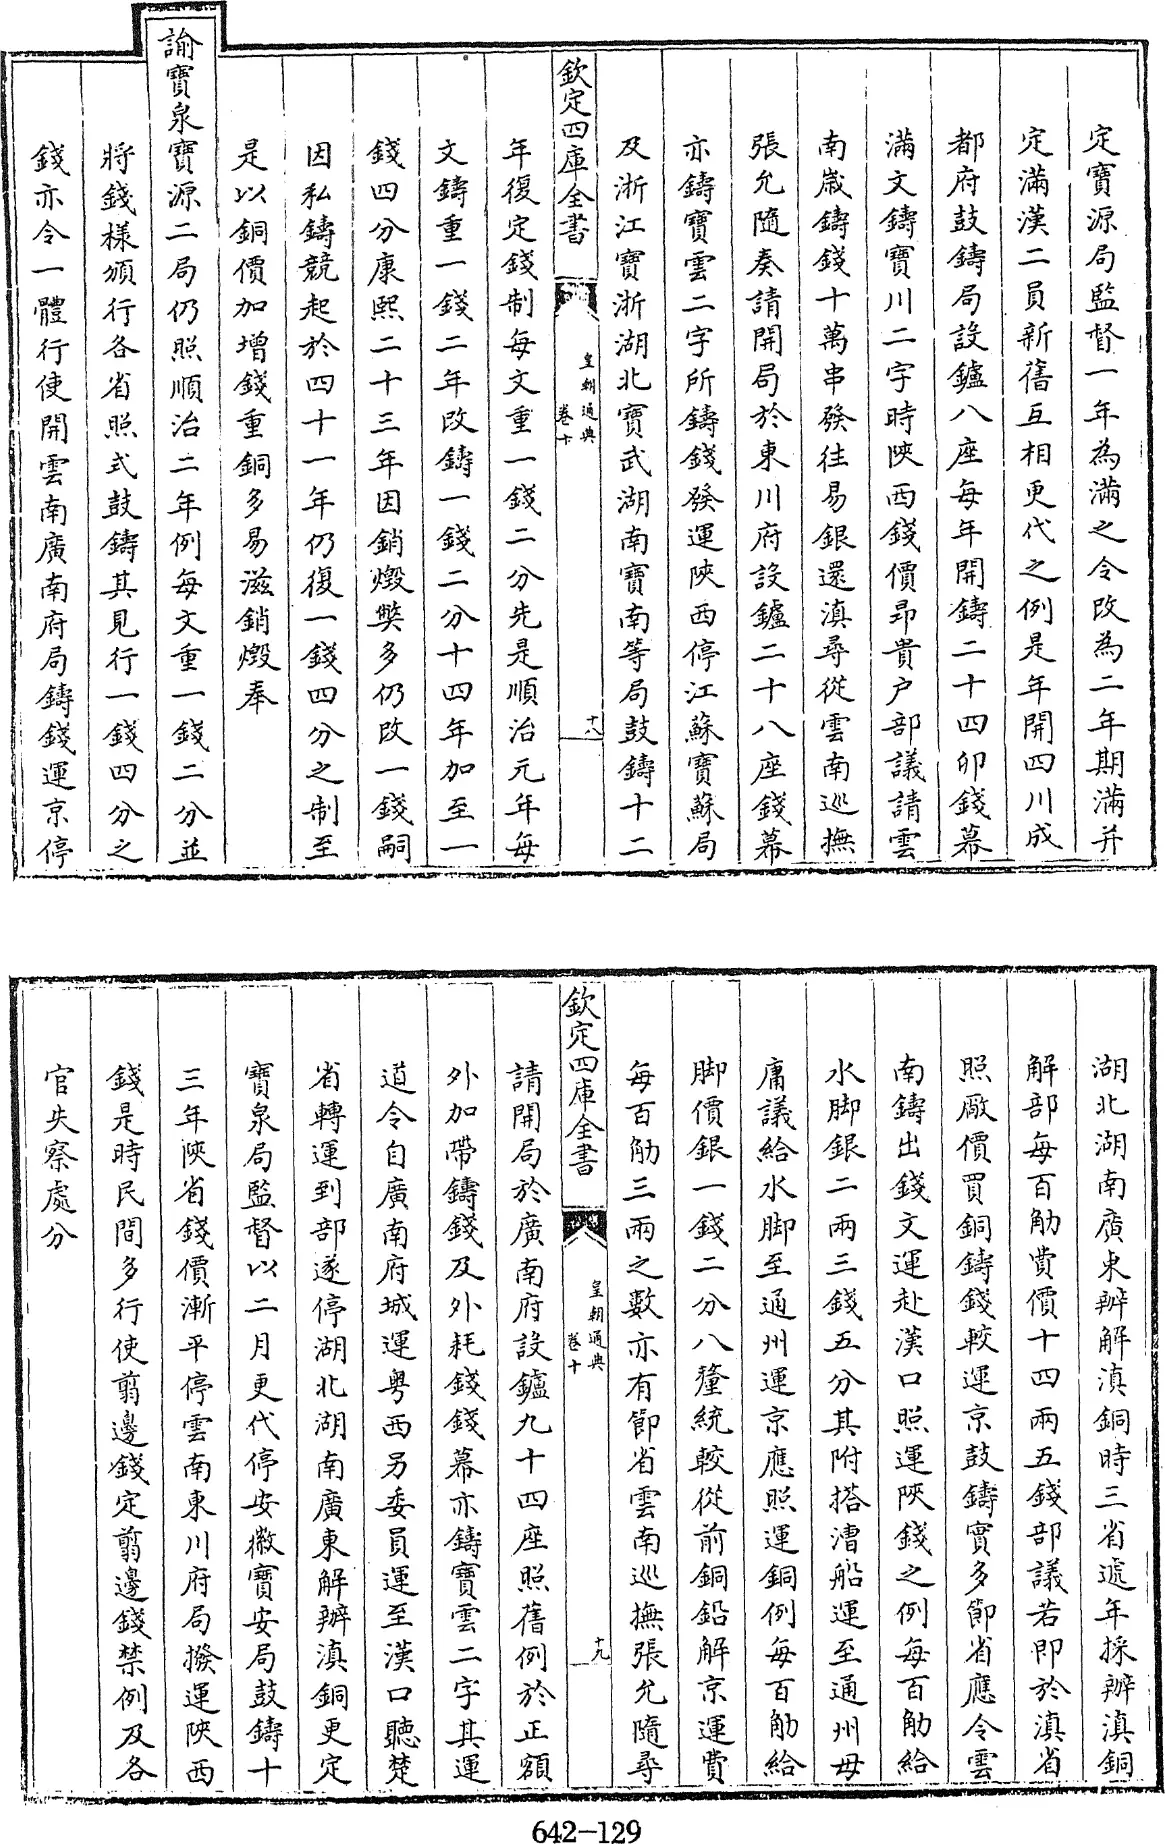 定寶源局監督一年為滿之令改為二年期滿并
定滿漢二員新舊互相更代之例是年開四川成
都府鼓鑄局設鑪八座每年開鑄二十四卯錢幕
滿文鑄寶川二字時陜西錢價昂貴户部議請雲
南嵗鑄錢十萬串發往易銀還滇尋從雲南巡撫
張允隨奏請開局於東川府設鑪二十八座錢幕
亦鑄寶雲二字所鑄錢發運陜西停江蘇寶蘇局
及浙江寶浙湖北寶武湖南寶南等局鼓鑄十二
欽定四庫全書
皇朝通典
卷十
十八
年復定錢制每文重一錢二分先是順治元年每
文鑄重一錢二年改鑄一錢二分十四年加至一
錢四分康熙二十三年因銷燬獘多仍改一錢嗣
因私鑄競起於四十一年仍復一錢四分之制至
是以銅價加增錢重銅多易滋銷燬奉
諭寶泉寶源二局仍照順治二年例每文重一錢二分並
將錢樣頒行各省照式鼓鑄其見行一錢四分之
錢亦令一體行使開雲南廣南府局鑄錢運京停
湖北湖南廣東辦解滇銅時三省遞年採辦滇銅
解部每百觔費價十四兩五錢部議若即於滇省
照厰價買銅鑄錢較運京鼓鑄實多節省應令雲
南鑄出錢文運赴漢口照運陜錢之例每百觔給
水脚銀二兩三錢五分其附搭漕船運至通州毋
庸議給水脚至通州運京應照運銅例每百觔給
脚價銀一錢二分八釐統較從前銅鉛解京運費
每百觔三兩之數亦有節省雲南巡撫張允隨尋
欽定四庫全書
皇朝通典
卷十
十九
請開局於廣南府設鑪九十四座照舊例於正額
外加帶鑄錢及外耗錢錢幕亦鑄寶雲二字其運
道令自廣南府城運粤西另委員運至漢口聽楚
省轉運到部遂停湖北湖南廣東解辦滇銅更定
寶泉局監督以二月更代停安徽寶安局鼓鑄十
三年陜省錢價漸平停雲南東川府局撥運陜西
錢是時民間多行使翦邊錢定翦邊錢禁例及各
官失察處分
642-129